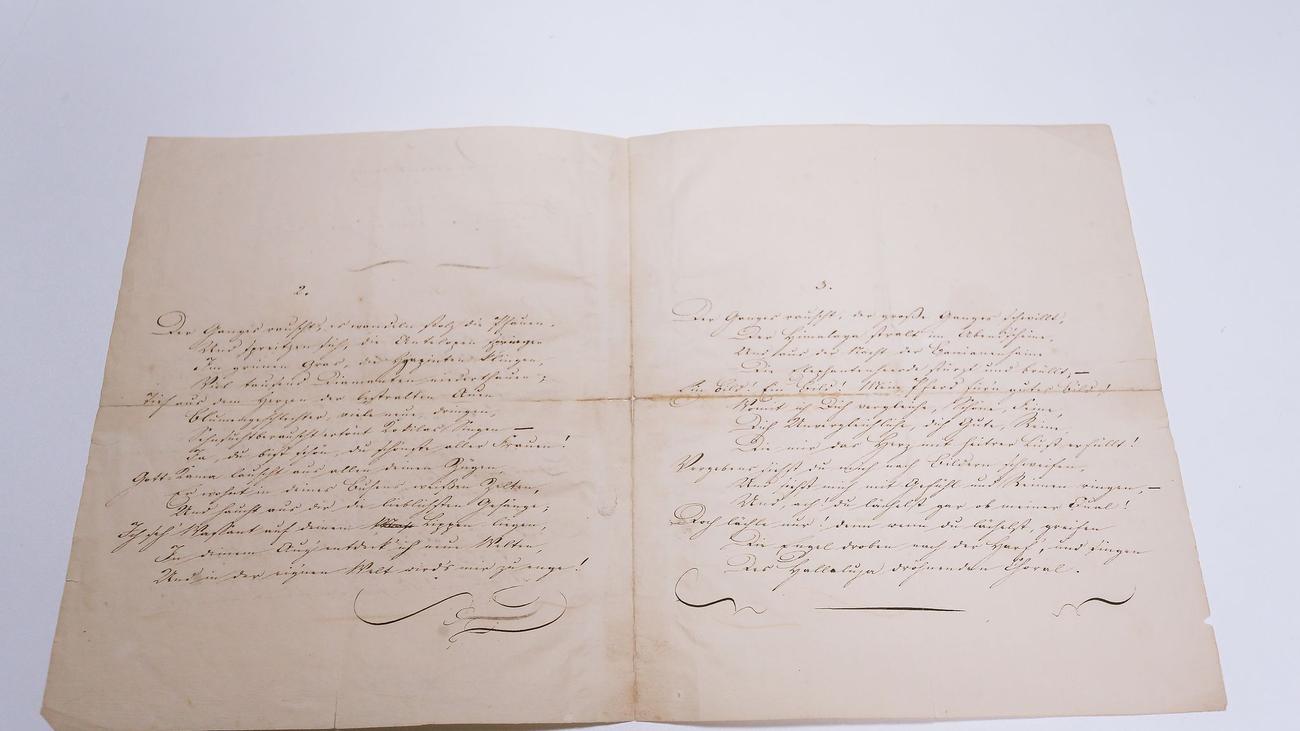 2.
Der Ganges rauscht, es wandeln stolz die Pfauen,
Und spreitzen sich, die Antelopen springen
Im grünen Gras, die Hyazinten klingen,
Viel tausend Diamanten niederthauen;
Tief aus dem Herzen der bestralten Auen
Blumengeschlechter, viele neue, dringen,
Sehnsuchtberauscht ertönt Kokilas Singen —
Ja, du bist schön, du schönste aller Frauen!
Gott Kama lauscht aus allen deinen Zügen,
Er wohnt in deines Busens weißen Zelten,
Und haucht aus dir die lieblichsten Gesänge;
Ich seh Wassant auf deinen Lippen liegen,
In deinem Aug' entdeck' ich neue Welten,
Und in der eignen Welt wird's mir zu enge!
3.
Der Ganges rauscht, der große Ganges schwillt,
Der Himalaya stralt im Abendscheine,
Und aus der Nacht der Banianenhaine
Die Elephantenheerde stürzt und brüllt, —
Ein Bild! Ein Bild! Mein Pferd für'n gutes Bild!
Womit ich Dich vergleiche, Schöne, Feine,
Dich Unvergleichliche, dich Gute, Reine,
Die mir das Herz mit heitrer Lust erfüllt!
Vergebens siehst du mich nach Bildern schweifen,
Und siehst mich mit Gefühl und Reimen ringen, —
Und, ach! du lächelst gar ob meiner Qual!
Doch lächle nur! denn wenn du lächelst, greifen
Die Engel droben nach der Harf', und singen
Des Halleluja dröhnenden Choral.